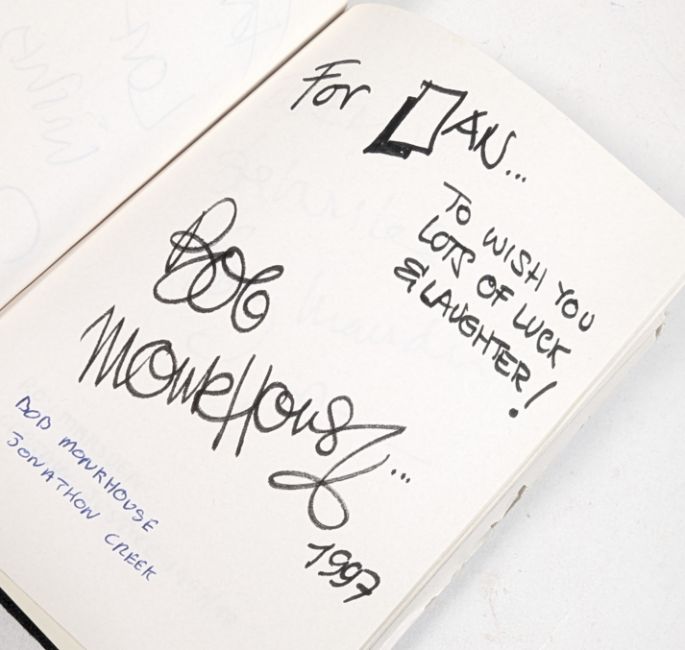 For IAN...
TO WISH YOU
LOTS OF LUCK
& LAUGHTER!
Bob
Monkhouse...
1997
BOB MONKHOUSE
JONATHON CREEK